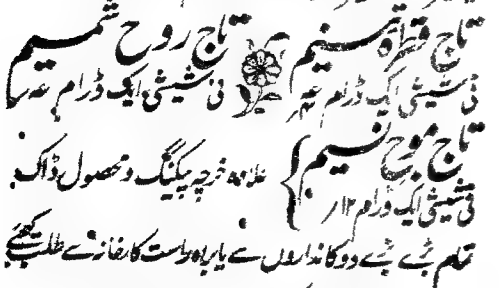 تاج قطرۂ تسنیم تاج روح شمیم
فی شیشی ایک ڈرام فی شیشی ایک ڈرام
تاج موج نسیم
فی شیشی ایک ڈرام ۱۲/ علاوہ خرچہ پیکنگ و محصول ڈاک
تمام بڑے بڑے دوکانداروں سے یا براہ راست کارخانہ سے طلب کیجئے